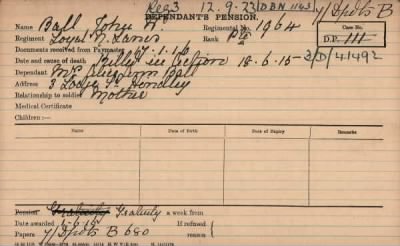 Reg 3 12.9.23 DBN 1163 y/Dpts B
DEPENDANT'S PENSION.
Name Ball John W. Regimental No. 1964
Regiment Loyal N. Lancs Rank Pte
Case No.
D.P. 111
Documents received from Paymaster 7.1.16
Date and cause of death Killed in action 18-6-15 3/D/41492
Dependant Mrs Alice Ann Ball
Address 3 Lodge St Hindley
Relationship to soldier Mother
Medical Certificate
Children:—
Name Date of Birth Date of Expiry Remarks
Pension Gratuity a week from
Date awarded 1-6-15 If refused
Papers y/Dpts B 680 reason